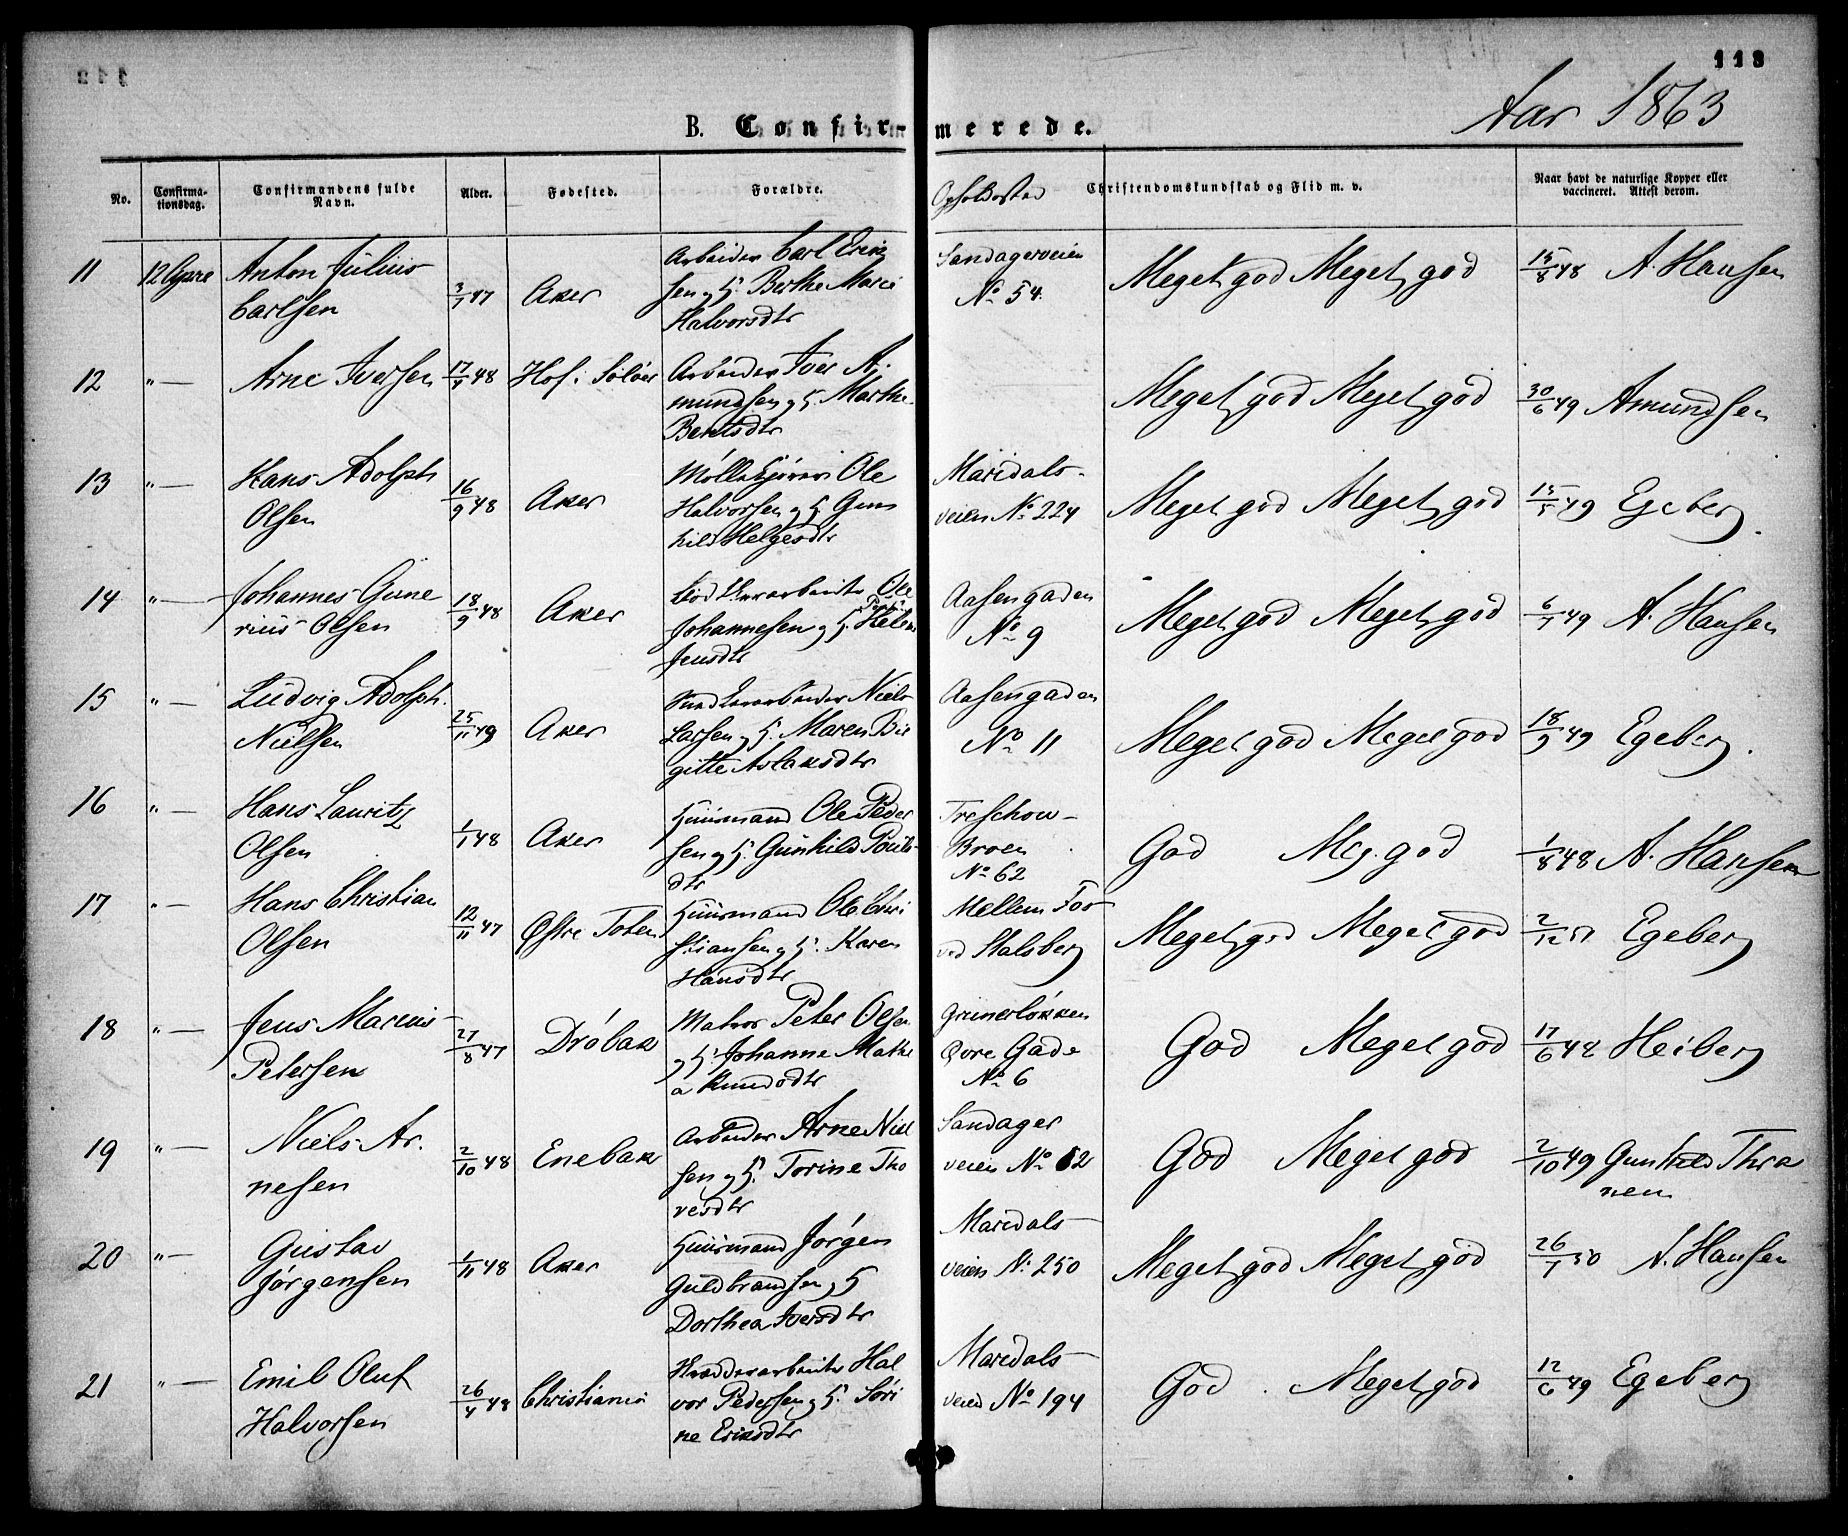 113
Aar 1863
B. Confirmerede.
No. Confirmationsdag. Confirmandens fulde Navn. Alder. Fødested. Forældre. Opholdssted Christendomskundskab og Flid m. v. Naar havt de naturlige Kopper eller vaccineret. Attest derom.
11 12 April Anton Julius Carlsen 3/1 47 Aker Arbeider Carl Eriksen og H. Berthe Marie Halvorsdtr Sandagerveien No 54. Meget god Meget god 15/8 48 A. Hansen
12 " — Arne Iversen 17/4 48 Hof i Soløer Arbeider Iver Amundsen og H. Marthe Bentsdtr Meget god Meget god 30/6 49 Amundsen
13 " — Hans Adolph Olsen 16/9 48 Aker Ole Halvorsen og H. Gunhild Helgesdtr Maridalsveien No 224 Meget god Meget god 15/5 49 Egeberg.
14 " — Johannes Gunerius Olsen 18/9 48 Aker Ole Johannesen og H. Helene Jensdtr Aasengaden No 9 Meget god Meget god 6/7 49 A. Hansen
15 " — Ludvig Adolph Nielsen 25/11 49 Aker Niels Larsen og H. Maren Birgitte Aslaksdtr Aasengaden No 11 Meget god Meget god 18/9 49 Egeberg.
16 " — Hans Lauritz Olsen 1/1 48 Aker Huusmand Ole Pedersen og H. Gunhild Poulsdtr Treschow-Broen No 62 God Meg. god 1/8 48 A. Hansen
17 " — Hans Christian Olsen 12/11 47 Østre Toten Huusmand Ole Christiansen og H. Karen Hansdtr Mellem For ved Stalsberg Meget god Meget god 2/12 51 Egeberg
18 " — Jens Marius Petersen 27/8 47 Drøbak Matros Peter Olsen og H. Johanne Mathea Knudsdtr Grünerløkken Øvre Gade No 6 God Meget god 17/6 48 Heiberg
19 " — Niels Arnesen 2/10 48 Enebak Arbeider Arne Nielsen og H. Torine Thoresdtr Sandagerveien No 62 God Meget god 2/10 49 Gunhild Thranem
20 " — Gustav Jørgensen 1/11 48 Aker Huusmand Jørgen Guldbrandsen og H Dorthea Iversdtr Maridalsveien No 250 Meget god Meget god 26/7 50 A. Hansen
21 " — Emil Oluf Halvorsen 26/4 48 Christiania Halvor Pedersen og H. Sørine Eriksdtr Maridalsveien No 194 God. Meget god 12/6 49 Egeberg